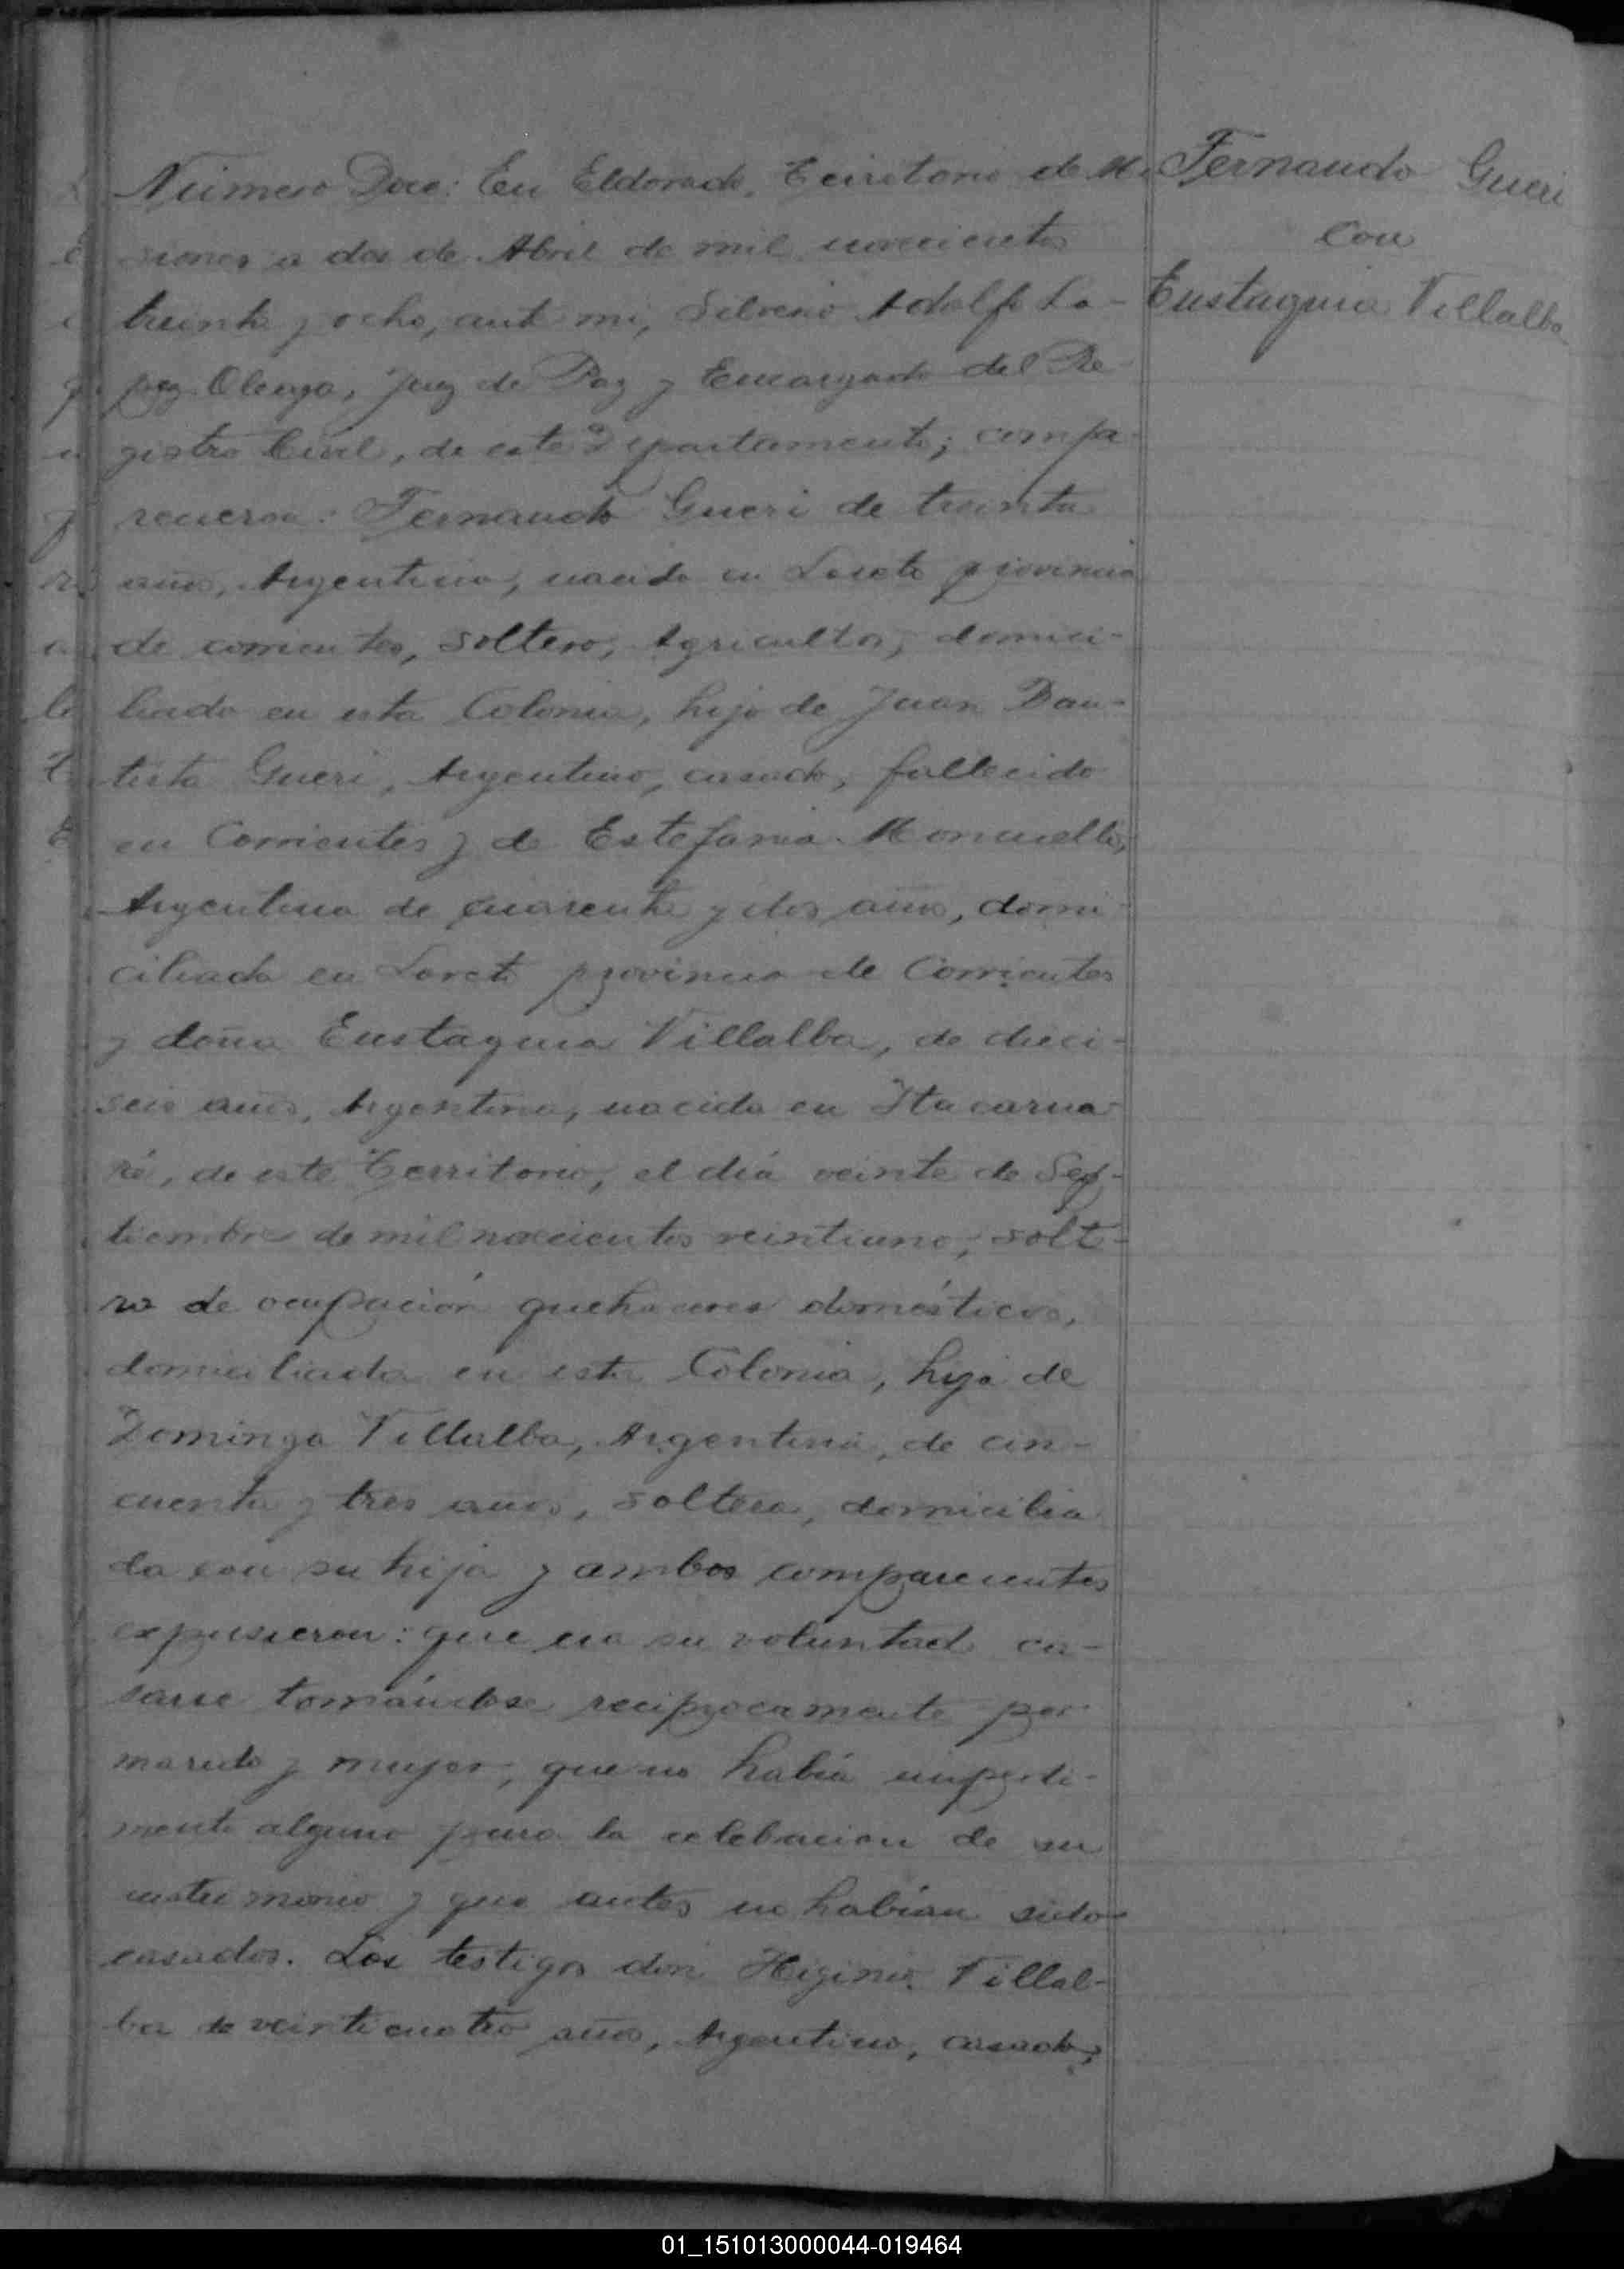 Número Doce: En Eldorado, Territorio de Mi
siones a dos de Abril de mil novecientos
treinta y ocho, ante mi, Silverio Adolfo Lo-
pez Olenga, Juez de Paz y Encargado del Re-
gistro Civil, de este Departamento; compa-
recieron: Fernando Gueri de treinta
años, Argentino, nacido en Loreto provincia
de corrientes, soltero, Agricultor, domici-
liado en esta Colonia, hijo de Juan Bau-
tista Gueri, Argentino, casado, fallecido
en Corrientes y de Estefania
Argentina de cuarenta y dos años, domi
ciliada en Loreto provincia de Corrientes
y doña Eustaquia Villalba, de dieci-
seis años, Argentina, nacida en Itacarua-
ré, de este Territorio, el día veinte de Sep-
tiembre de mil novecientos veintiuno, solte-
ra de ocupación quehaceres domésticos,
domiciliada en esta Colonia, hija de
Dominga Villalba, Argentina, de cin-
cuenta y tres años, soltera, domicilia
da con su hija y ambos comparecientes
expusieron: que era su voluntad ca-
sarse tomándose reciprocamente por
marido y mujer, que no había impedi-
mento alguno para la celebracion de su
matrimonio y que antes no habían sido
casados. Los testigos don Higinio Villal-
ba de veinticuatro años, Argentino, casado,
Fernando Gueri
con
Eustaquia Villalba
01_151013000044-019464